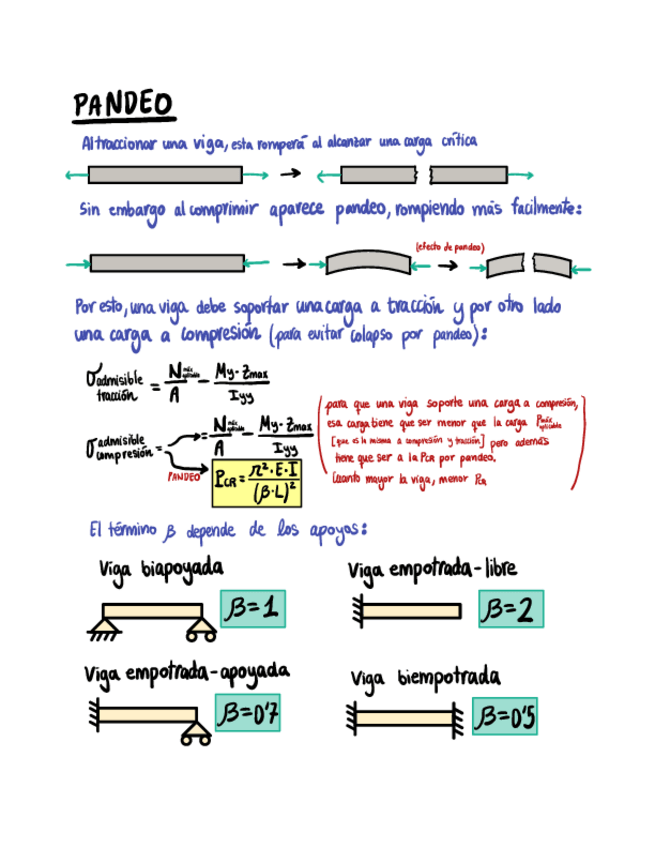 PANDEO
Al traccionar una viga, esta romperá al alcanzar una carga crítica
Sin embargo al comprimir aparece pandeo, rompiendo más facilmente:
(efecto de pandeo)
Por esto, una viga debe soportar una carga a tracción y por otro lado
una carga a compresión (para evitar colapso por pandeo):
σ admisible tracción = N máx aplicable / A - My·Zmax / Iyy
σ admisible compresión = = N máx aplicable / A - My·Zmax / Iyy
PANDEO PCR = π²·E·I / (β·L)²
para que una viga soporte una carga a compresión,
esa carga tiene que ser menor que la carga P máx aplicable
[que es la misma a compresión y tracción] pero además
tiene que ser a la PCR por pandeo.
Cuanto mayor la viga, menor PCR
El término β depende de los apoyos:
Viga biapoyada
β=1
Viga empotrada-libre
β=2
Viga empotrada-apoyada
β=0'7
Viga biempotrada
β=0'5